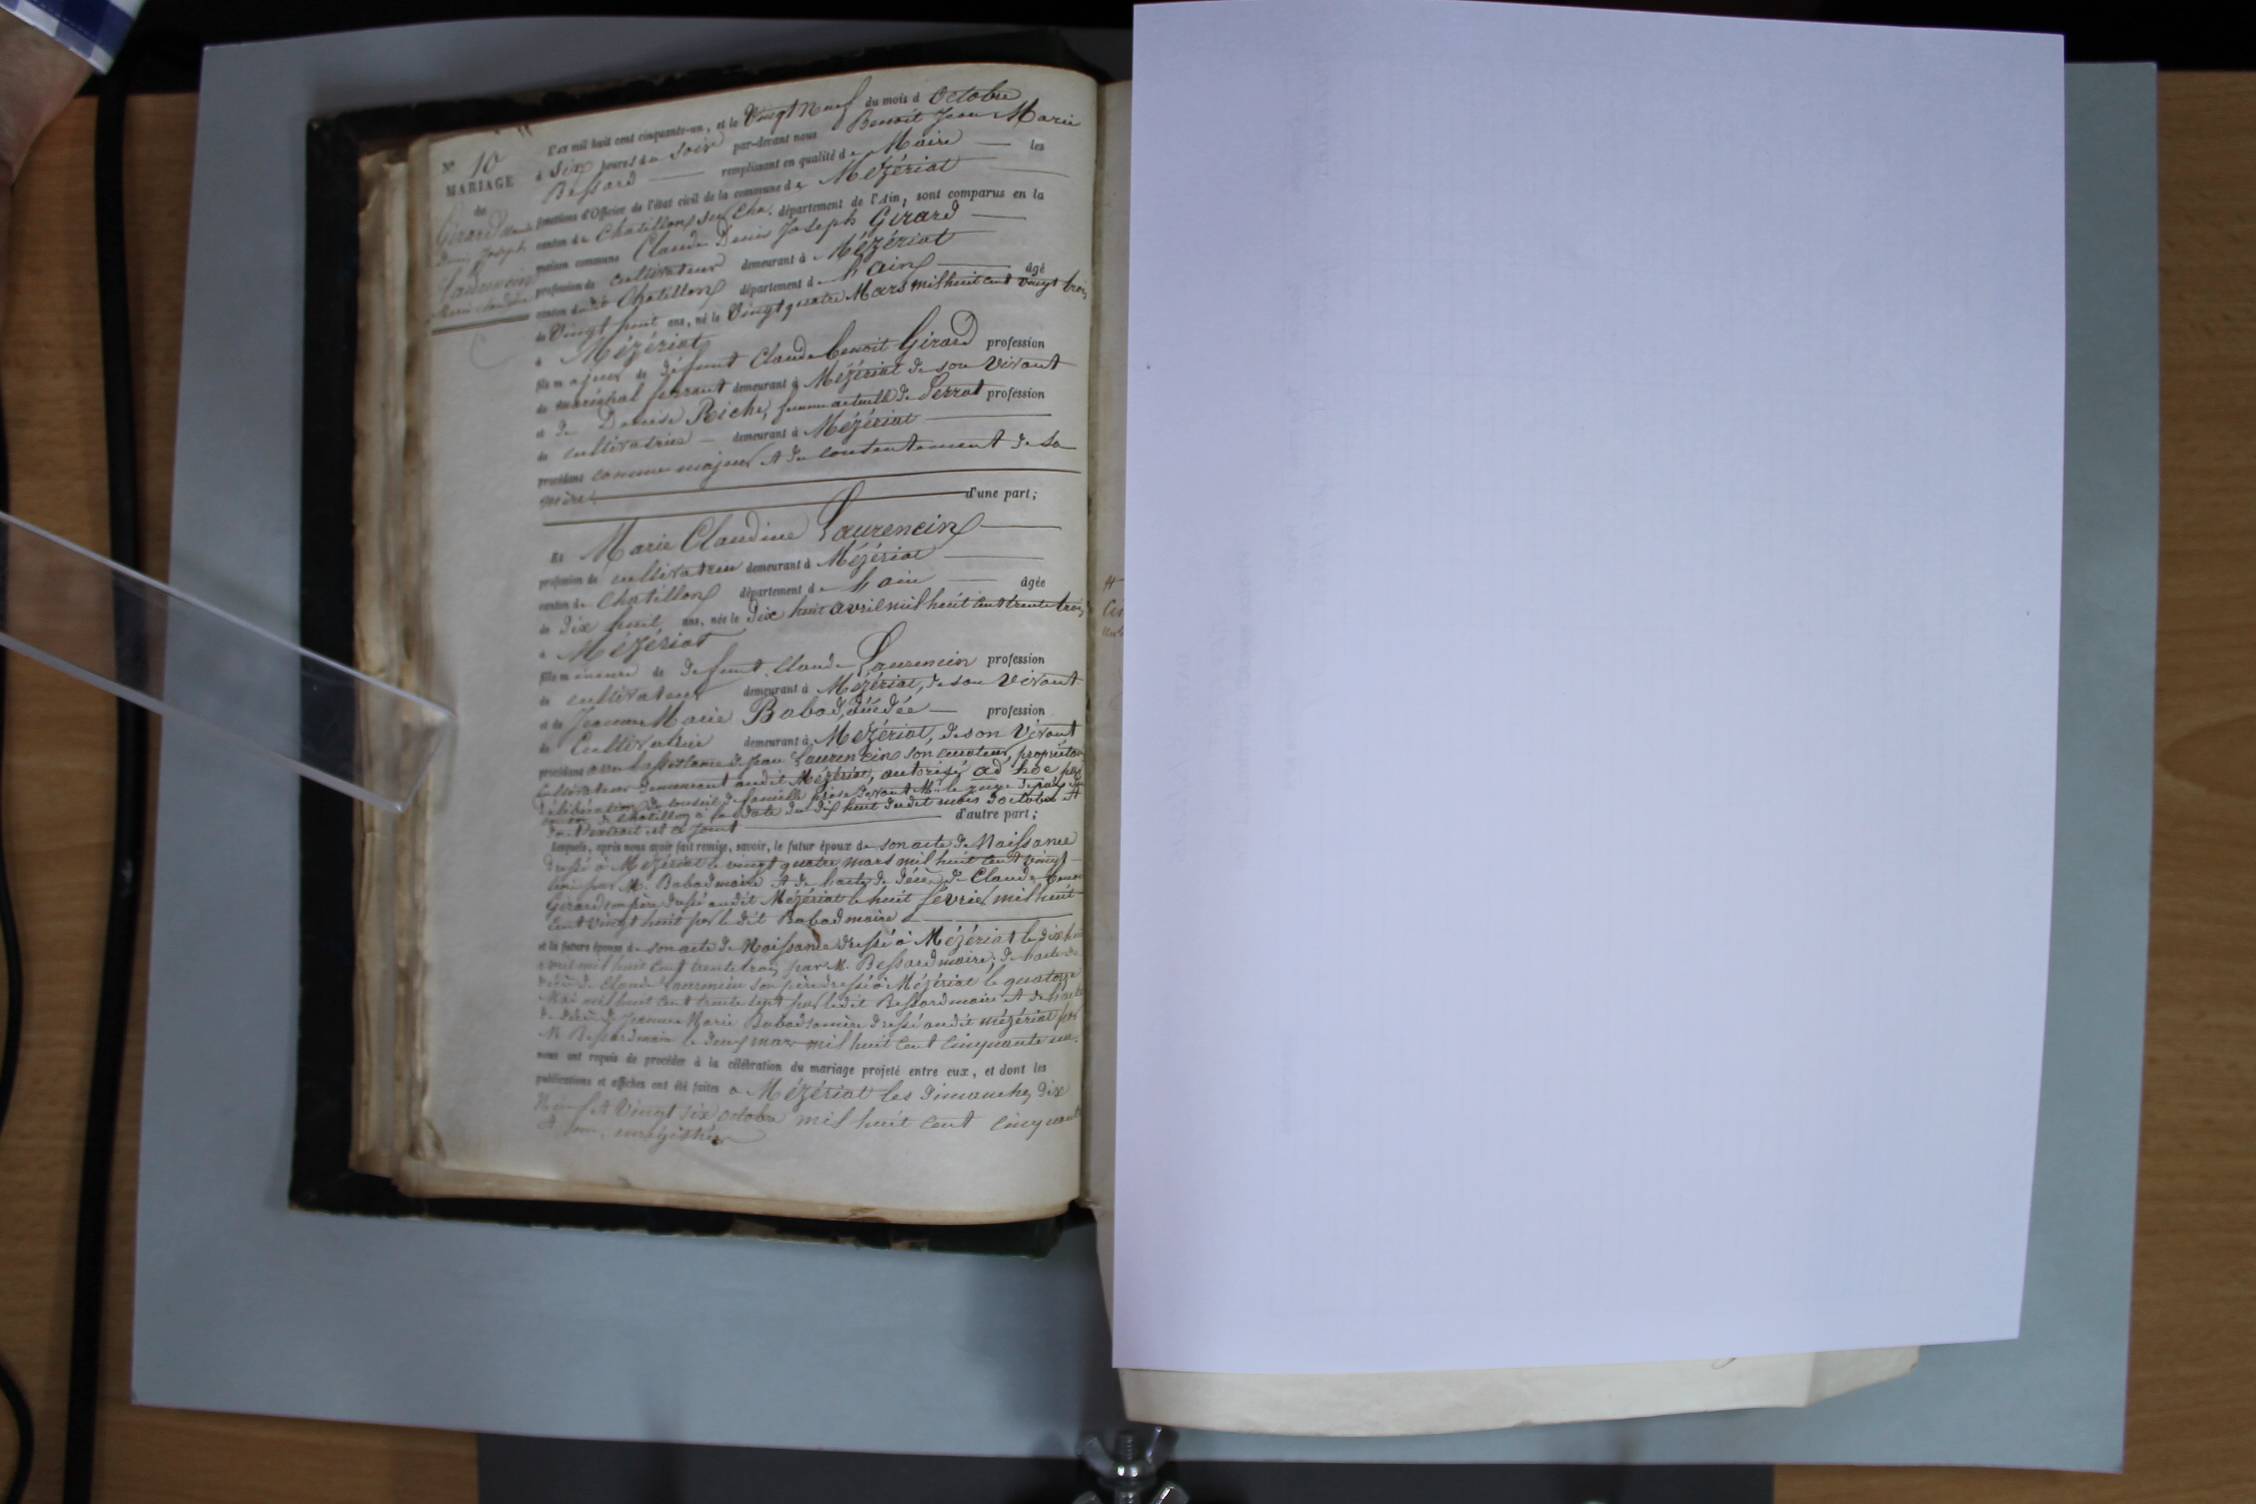 N° 10
MARIAGE
de
Girard Claude
Denis Joseph
Laurencin
Marie Claudine
L'an mil huit cent cinquante-un, et le Vingt Neuf du mois d Octobre
à Six heures du Soir par-devant nous Benoit Jean Marie
Bessard remplissant en qualité de Maire les
fonctions d'Officier de l'état civil de la commune de Mézériat
canton de Chatillon sur Cha. département de l'Ain, sont comparus en la
maison commune Claude Denis Joseph Girard
profession de cultivateur demeurant à Mézériat
canton de Chatillon département de l'ain âgé
de Vingt huit ans, né le Vingt quatre Mars mil huit cent vingt trois
à Mézériat
fils majeur de défunt Claude Benoit Girard profession
de maréchal ferrant demeurant à Mézériat de son Vivant
et de Denise Riche, femme actuelle de Perrat profession
de cultivatrice demeurant à Mézériat
procédant comme majeur et du contentement de sa
mère d'une part;
Et Marie Claudine Laurencin
profession de cultivatrice demeurant à Mézériat
canton de Chatillon département de l'ain âgée
de dix huit ans, née le dix huit avril mil huit cent trente trois
à Mézériat
fille mineure de défunt Claude Laurencin profession
de cultivateur demeurant à Mézériat, de son Vivant
et de Jeanne Marie Babad, décédée profession
de Cultivatrice demeurant à Mézériat, de son Vivant
procédant avec l'assistance de Jean Laurencin son curateur, propriétaire
cultivateur demeurant audit Mézériat, autorisé ad hoc par
délibération du conseil de famille prise devant Mr le juge de paix du
canton de Chatillon à la date du dix huit dudit mois d'octobre et
dont extrait est ci joint d'autre part;
Lesquels, après nous avoir fait remise, savoir, le futur époux de son acte de Naissance
dressé à Mézériat le vingt quatre mars mil huit cent vingt
trois par M. Babad maire et de l'acte de décès de Claude Benoit
Girard son père dressé audit Mézériat le huit février mil huit
cent vingt huit par le dit Babad maire
et la future épouse de son acte de Naissance dressé à Mézériat le dix huit
avril mil huit cent trente trois par M. Bessard maire; de l'acte de
décès de Claude Laurencin son père dressé à Mézériat le quatorze
Mai mil huit cent trente sept par le dit Bessard maire et de l'acte
de décès de Jeanne Marie Babad sa mère dressé audit mézériat par
M. Bessard maire le deux mars mil huit cent cinquante un.
nous ont requis de procéder à la célébration du mariage projeté entre eux, et dont les
publications et affiches ont été faites à Mézériat les dimanches dix
Neuf et Vingt six octobre mil huit cent cinquante